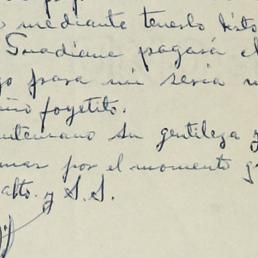 mediante tenerlo listo
Guadiana pagará el
para mi seria
foyetito.
su gentileza y
mas por el momento
alto. y S.S.